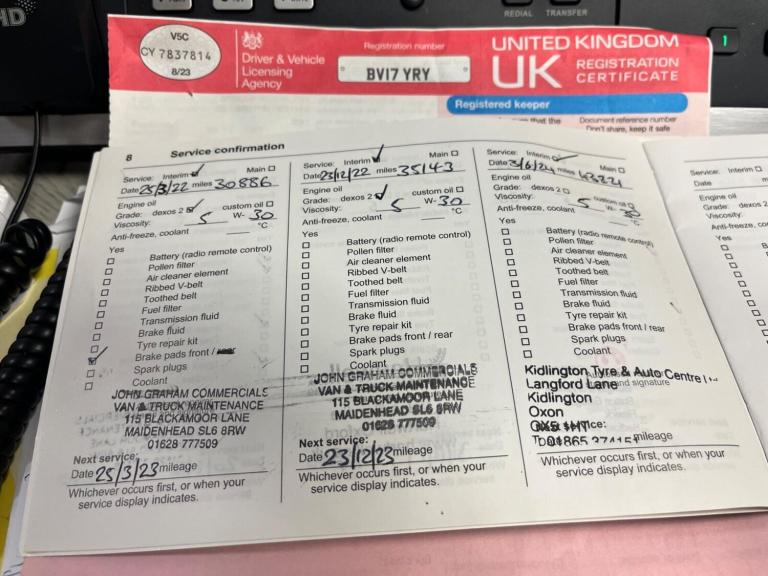 HD
REDIAL TRANSFER
1
V5C
CY 7837814
8/23
Driver & Vehicle
Licensing
Agency
Registration number
BV17 YRY
UNITED KINGDOM
UK REGISTRATION
CERTIFICATE
Registered keeper
Document reference number
Don't share, keep it safe
8 Service confirmation
Service: Interim Main
Date 25/3/22 miles 30886
Engine oil
Grade: dexos 2 custom oil
Viscosity: 5 W- 30
Anti-freeze, coolant °C
Yes
Battery (radio remote control)
Pollen filter
Air cleaner element
Ribbed V-belt
Toothed belt
Fuel filter
Transmission fluid
Brake fluid
Tyre repair kit
Brake pads front /
Spark plugs
Coolant
JOHN GRAHAM COMMERCIALS
VAN & TRUCK MAINTENANCE
115 BLACKAMOOR LANE
MAIDENHEAD SL6 8RW
01628 777509
Next service:
Date 25/3/23 mileage
Whichever occurs first, or when your
service display indicates.
Service: Interim Main
Date 23/12/22 miles 35143
Engine oil
Grade: dexos 2 custom oil
Viscosity: 5 W- 30
Anti-freeze, coolant °C
Yes
Battery (radio remote control)
Pollen filter
Air cleaner element
Ribbed V-belt
Toothed belt
Fuel filter
Transmission fluid
Brake fluid
Tyre repair kit
Brake pads front / rear
Spark plugs
Coolant
JOHN GRAHAM COMMERCIALS
VAN & TRUCK MAINTENANCE
115 BLACKAMOOR LANE
MAIDENHEAD SL6 8RW
01628 777509
Next service:
Date 23/12/23 mileage
Whichever occurs first, or when your
service display indicates.
Service: Interim Main
Date 3/6/24 miles
Engine oil
Grade: dexos 2 custom oil
Viscosity: 5 W- 30
Anti-freeze, coolant °C
Yes
Battery (radio remote control)
Pollen filter
Air cleaner element
Ribbed V-belt
Toothed belt
Fuel filter
Transmission fluid
Brake fluid
Tyre repair kit
Brake pads front / rear
Spark plugs
Coolant
Kidlington Tyre & Auto Centre
Langford Lane and signature
Kidlington
Oxon
mileage
Whichever occurs first, or when your
service display indicates.
Service: Interim
Date
Engine oil
Grade: dexos 2
Viscosity:
Anti-freeze,
Yes